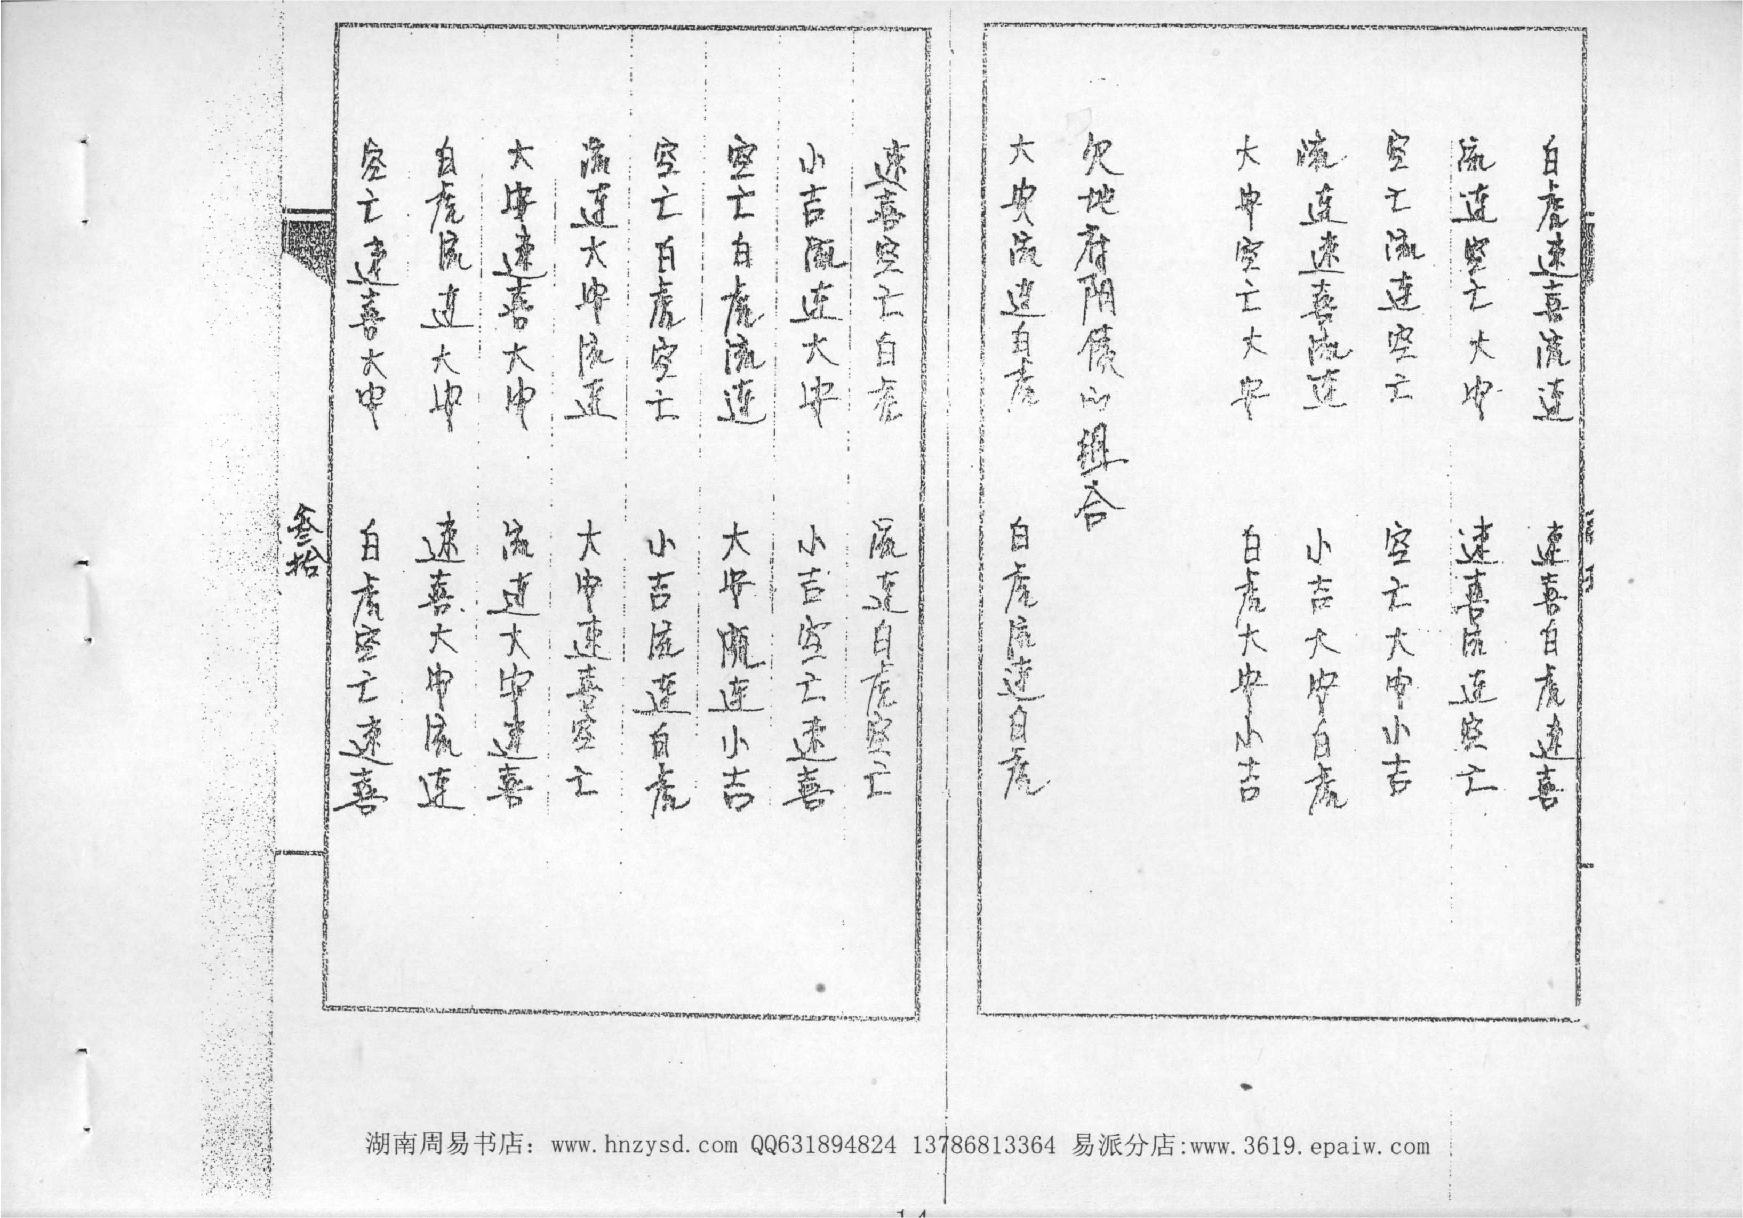 白虎速喜流连
速喜白虎速喜
流连空亡大安
速喜流连空亡
空亡流连空亡
空亡大安小吉
流连速喜流连
小吉大安白虎
大安空亡大安
白虎大安小吉
欠地府阴债的组合
大安流连白虎
白虎流连白虎
速喜空亡白虎
流连白虎空亡
小吉流连大安
小吉空亡速喜
空亡白虎流连
大安流连小吉
空亡白虎空亡
小吉流连白虎
流连大安流连
大安速喜空亡
大安速喜大安
流连大安速喜
白虎流连大安
速喜大安流连
空亡速喜大安
白虎空亡速喜
叁拾
湖南周易书店：www.hnzysd.com QQ631894824 13786813364 易派分店:www.3619.epaiw.com